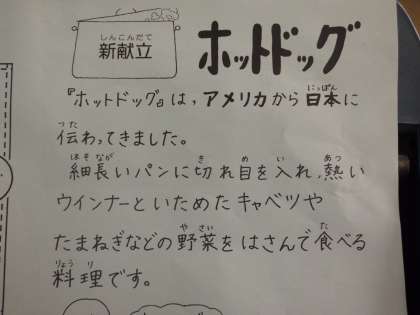 しんこんだて
新献立
ホットドッグ
『ホットドッグ』は、アメリカから日本に
にっぽん
伝わってきました。
つた
細長いパンに切れ目を入れ、熱い
ほそ なが き め い あつ
ウインナーといためたキャベツや
たまねぎなどの野菜をはさんで食べる
や さい た
料理です。
りょう り